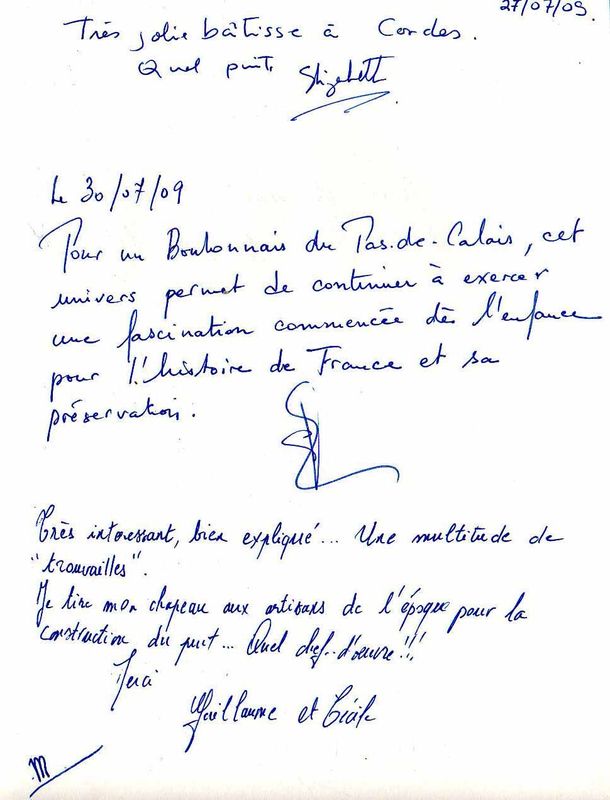 27/07/09.
Très jolie bâtisse à Cordes.
Quel puit.
Le 30/07/09
Pour un Boulonnais du Pas-de-Calais, cet
univers permet de continuer à exercer
une fascination commencée dès l'enfance
pour l'histoire de France et sa
préservation.
Très interessant, bien expliqué... Une multitude de
"trouvailles".
Je tire mon chapeau aux artisans de l'époque pour la
construction du puit... Quel chef-d'œuvre!!!
Merci
Guillaume et Cécile
M